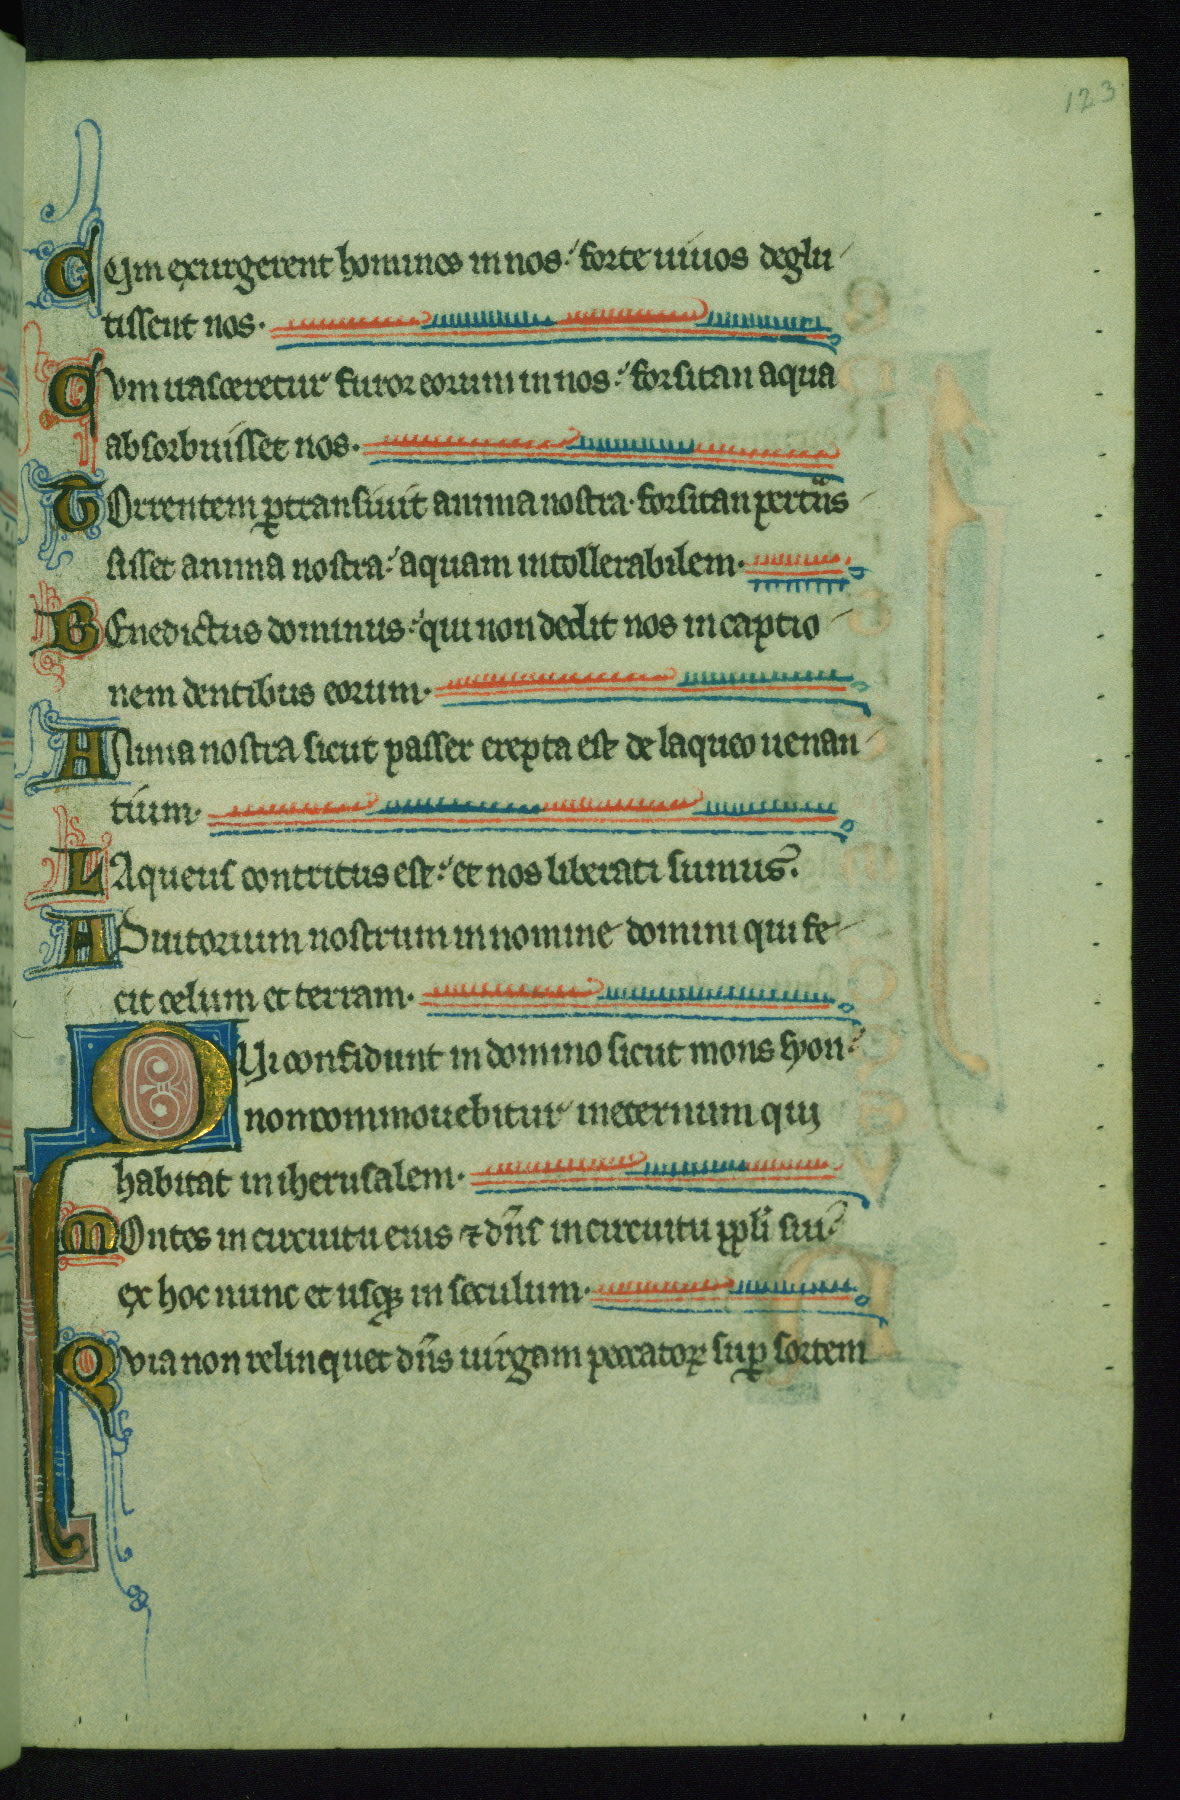 123
Cum exurgerent homines in nos: forte uiuos deglu
tissent nos.
Cum irasceretur furor eorum in nos: forsitan aqua
absorbuisset nos.
Torrentem ꝑtransiuit anima nostra. forsitan pertns
sisset anima nostra: aquam intollerabilem.
Benedictus dominus: qui non dedit nos in captio
nem dentibus eorum.
Anima nostra sicut passer erepta est de laqueo uenan
tium.
Laqueus contritus est: et nos liberati sumus.
Adiutorium nostrum in nomine domini qui fe
cit celum et terram.
Qui confidunt in domino sicut mons syon:
non commouebitur in eternum qui
habitat in iherusalem.
Montes in circuitu eius ⁊ dn̄s in circuitu ppl̓i sui:
ex hoc nunc et usqꝫ in seculum.
Quia non relinquet dn̄s uirgam peccatoꝝ suꝑ sortem